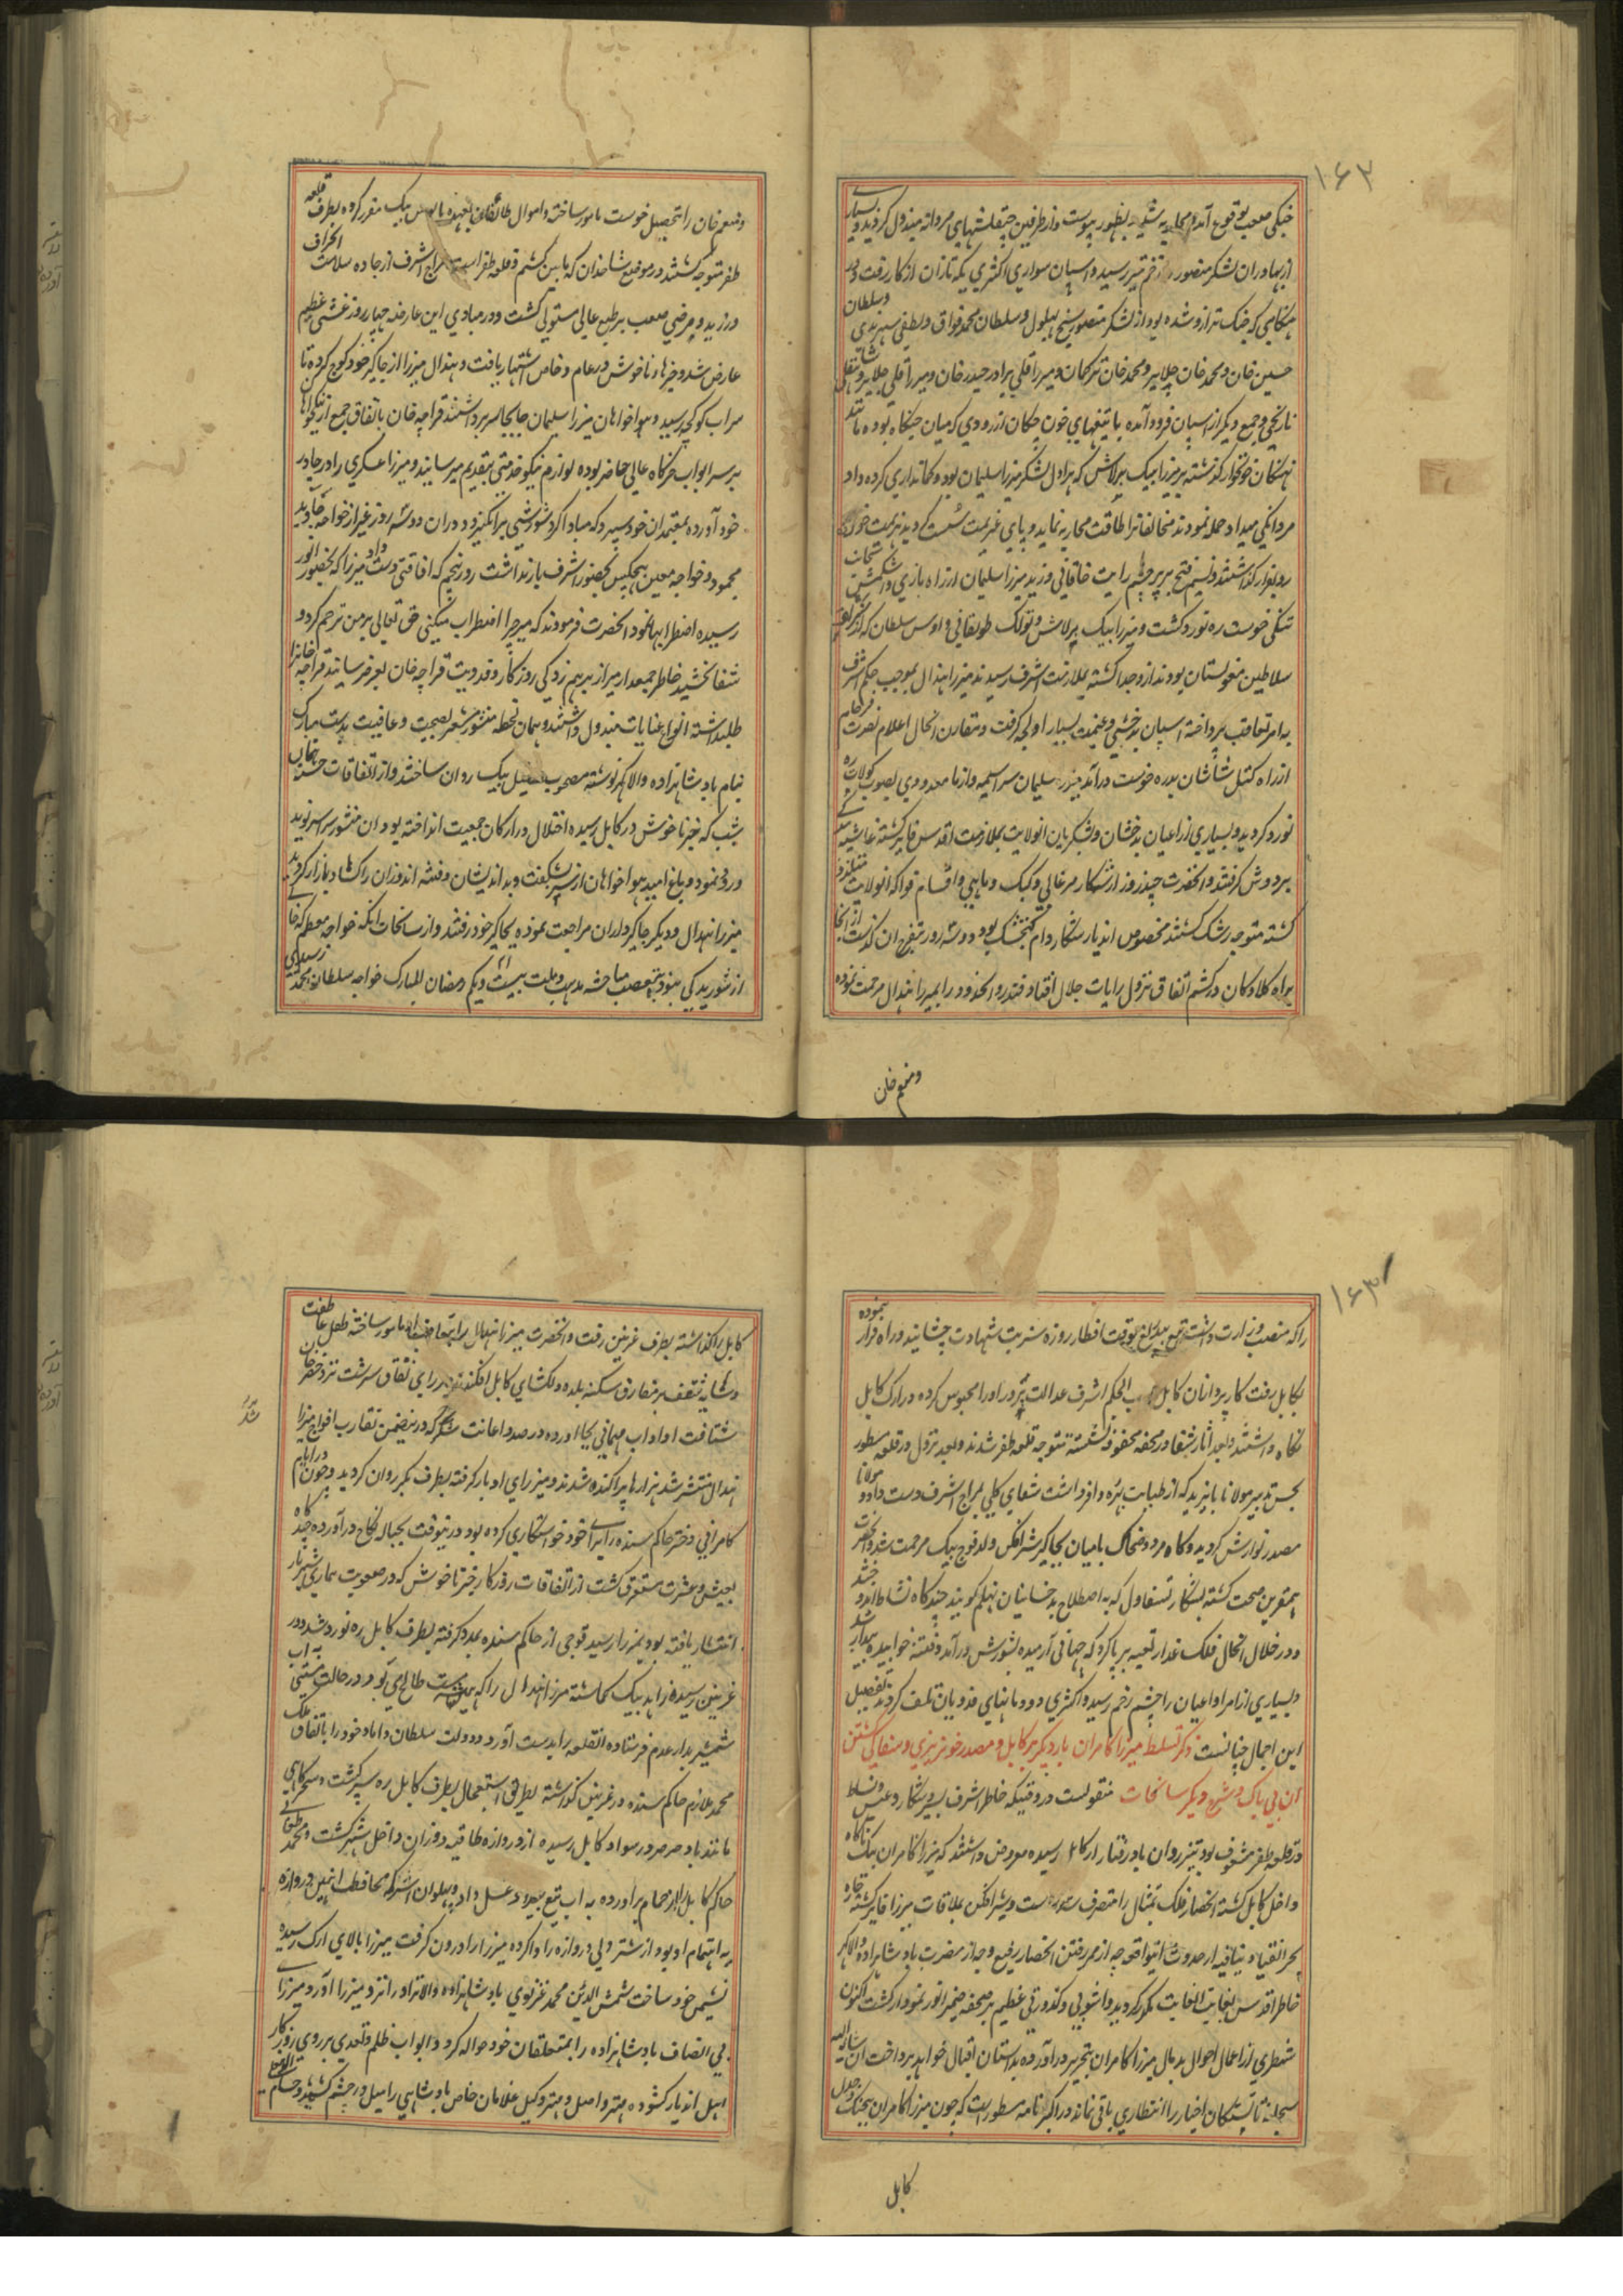 ۱۶۳
جنگی صعب بوقوع آمده محاربه شدید بظهور پیوست و از طرفین چپقلشهای مردانه مبذول گردید و بسیاری
از بهادران لشکر منصور زخم تیر رسید و اسپان سواری اکثری یکه تازان از کار رفت و در
هنگامی که جنگ ترازو شده بود از لشکر منصور شیخ بهلول و سلطان محمد فواق و لطفی سهرندی و سلطان
حسین خان و محمد خان جلایر و محمد خان ترکمان و میرزا قلی برادر حیدر خان و میرزا قلی جلایر و شاهقلی
نارنجی و جمع دیگر از اسپان فرود آمده با تیغهای خون چکان از رودی که میان جنگاه بوده مانند
نهنگان خونخوار گذشته بر میرزا بیک برلاس که هراول لشکر میرزا سلیمان بود و کمانداری کرده داد
مردانگی میداد حمله نمودند مخالفانرا طاقت محاربه نماند و پای عزیمت سست گردید هزیمت خورده
رو بفرار گذاشتند و نسیم فتح بر پرچم رایت خاقانی وزید میرزا سلیمان از راه بازی و اشکمش
تنگی خوست ره نورد گشت و میرزا بیک برلاس و تولک طولقانی و اویس سلطان که از
سلاطین مغولستان بودند ازو جدا گشته بملازمت اشرف رسیدند میرزا هندال بموجب حکم اشرف
به امر تعاقب پرداخته اسپان بدخشی و غنیمت بسیار اولجه گرفت و مقارن انحال اعلام نصرت فرجام
از راه کتل شاشان بدره خوست درآمد میرزا سلیمان سراسیمه وار با معدودی بصوب کولاب ره
نورد گردید و بسیاری از اعیان بدخشان و لشکریان انولایت بملازمت اقدس فایز گشته غاشیه بندگی
بر دوش گرفتند و انحضرت چند روز از شکار مرغابی و کبک و ماهی و اقسام فواکه انولایت متلذذ
گشته متوجه رشک گشتند مخصوص اندیار شکار دام گنجشک بود و دو سه روز بتفرج ان گذشت از انجا
براه کلاوکان در کشم اتفاق نزول رایات جلال افتاد و قندوز و انحدود را بمیرزا هندال مرحمت نموده
ومنعم خان
ومنعم خان را تحصیل خوست مامور ساخته و اموال طالقان بعهده بابوس بیک مقرر کرده بطرف قلعه
ظفر متوجه گشتند در موضع شاخدان که مابین کشم و قلعه ظفر است مزاج اشرف از جاده سلامت انحراف
ورزید و مرضی صعب بر طبع عالی مستولی گشت و در مبادی این عارضه چهار روز غشی عظیم
عارض شد و خبرهاء ناخوش در عام و خاص اشتهار یافت و هندال میرزا از جاگیر خود کوچ کرده تا
سراب کوکچه رسید و هواخواهان میرزا سلیمان جابجا سر برداشتند قراچه خان باتفاق جمع از نیکخواهان
بر سر ابواب خرگاه عالی حاضر بوده لوازم نیکو خدمتی بتقدیم میرسانید و میرزا عسکری را در چادر
خود آورده بمعتمدان خود سپرد که مبادا گرد شورشی برانگیزد و دران دو سه روز غیر از خواجه خاوند
محمود و خواجه معین هیچکس بحضور اشرف بار نداشت روز پنجم که افاقتی دست داد میرزا که بحضور انور
رسیده اضطرابها نمود انحضرت فرمودند که میر چرا اضطراب میکنی حق تعالی بر من ترحم کرد و
شفا بخشید خاطر جمعدار میر از برهم زدگی روزگار و فدویت قراچه خان بعرض رسانید قراچه خانرا
طلبداشته انواع عنایات مبذول داشتند و همان لحظه منشور مشعر بصحت و عافیت بدست مبارک
بنام بادشاهزاده والا گهر نوشته مصحوب فضیل بیک روان ساختند و از اتفاقات حسنه همان
شب که خبر ناخوش در کابل رسیده اختلال در ارکان جمعیت انداخته بود ان منشور سراسر نوید
ورود نمود و باغ امید هواخواهان از سر شگفت و بداندیشان و فتنه اندوزان را کساد بازار گردید
میرزا هندال و دیگر جاگیرداران مراجعت نموده بجاگیر خود رفتند و از سانحات انکه خواجه معظم که خالی
از شوریدگی نبود بتعصب مباحثه مذهب و ملت بیست ویکم رمضان المبارک خواجه سلطان محمد رشیدی
۱۶۴
را که منصب وزارت داشت به تیغ بیدریغ بوقت افطار روزه شربت شهادت چشانید و راه فرار نموده
بکابل رفت کار پردازان کابل حسب الحکم اشرف عدالت پرور او را محبوس کرده در ارک کابل
نگاه داشتند و بعد اثار شفا در محفه محفوف نشسته متوجه قلعه ظفر شدند و بعد نزول در قلعه مسطور
بحسن تدبیر مولانا بایزید که از طبابت بهره وافر داشت شفای کلی بمزاج اشرف دست داد و مولانا
مصدر نوازش گردید و کاه مرد و ضحاک بامیان بجاگیر شیرافکن ولد قوچ بیک مرحمت شد و انحضرت
همقرین صحت گشته بشکار تسقاول که به اصطلاح بدخشانیان نهلم گویند چندگاه نشاط اندوز شدند
و در خلال انحال فلک غدار تعبیه برپا کرد که جهانی آرمیده بشورش درآمد و فتنه خوابیده بیدار شد
و بسیاری از امرا و اعیان را چشم زخم رسیده اکثری دودمانهای فدویان تلف گردید تفصیل
این اجمال چنانست ذکر تسلط میرزا کامران بار دیگر بر کابل و مصدر خونریزی و سفاکی گشتن
ان بی باک و شرح دیگر سانحات منقولست در وقتیکه خاطر اشرف بسیر و شکار و عیش و نشاط
در قلعه ظفر مشعوف بود تیزروان باد رفتار از کابل رسیده معروض داشتند که میرزا کامران ناگاه
داخل کابل گشته انحصار فلک تمثال را متصرف شده است و شیرافکن بملاقات میرزا فایز گشته چاره
بجز انقیاد نیافته از حدوث انیواقعه چه از ممر رفتن انحصار رفیع و چه از مضرت بادشاهزاده والا گهر
خاطر اقدس بغایت الغایت مکدر گردید و اشوبی و کدورتی عظیم بر صحفه ضمیر انور نمودار گشت اکنون
شطری از اعمال احوال بدمال میرزا کامران بتحریر درآورده بداستان اقبال خواهد پرداخت ان شاء الله
سبحانه تا تشنگان اخبار را انتظاری باقی نماند در اکبر نامه مسطور است که چون میرزا کامران بجنگ و جدال
کابل
کابل را گذاشته بطرف غزنین رفت و انحضرت میرزا هندال را بتعاقب او مامور ساخته ظل عاطفت
و شاه منقف بر مفارق سکنه بلده دلکشای کابل افکندند میرزای نفاق سرشت نزد خضر خان
شتافت او اداب مهمانی بجا اورده در صدد اعانت شد که در ینضمن تقارب افواج میرزا
هندال منتشر شد هزارها پراکنده شدند و میرزای ادبار گرفته بطرف بکر روان گردید و چون در ایام
کامرانی دختر حاکم سنده را برای خود خواستگاری کرده بود درینوقت بحباله نکاح درآورده چندگاه
بعیش و عشرت مستغرق گشت از اتفاقات روزگار خبر ناخوش که در صعوبت بیماری اشتهار
انتشار یافته بود بمیرزا رسید فوجی از حاکم سنده بمدد گرفته بطرف کابل ره نورد شد و در
غزنین رسیده زاهد بیک گماشته میرزا هندال را که مست طالع بود در حالت مستی به اب
شمشیر بدار عدم فرستاده انقلعه را بدست آورد و دولت سلطان داماد خود را باتفاق ملک
محمد ملازم حاکم سنده در غزنین گذاشته بطریق استعجال بطرف کابل ره سپر گشت و صبحگاهی
مانند باد صرصر در سواد کابل رسیده از دروازه طاقیه دوزان داخل شهر گشت و محمد طغایی
حاکم کابل را از حمام برآورده به اب تیغ بیدریغ غسل داد و پهلوان اشتر که محافظت اینین دروازه
به اهتمام او بود از شتر دلی دروازه را وا کرده میرزا را درون گرفت میرزا بالای ارک رسیده
نشیمن خود ساخت شمس الدین محمد غزنوی بادشاهزاده والا نژاد را نزد میرزا آورد میرزای
بی انصاف بادشاهزاده را بمتعلقان خود حواله کرد و ابواب ظلم و تعدی بر روی روزگار
اهل اندیار گشوده مهتر واصل و مهتر وکیل غلامان خاص بادشاهی را میل در چشم کشید و حسام الدین